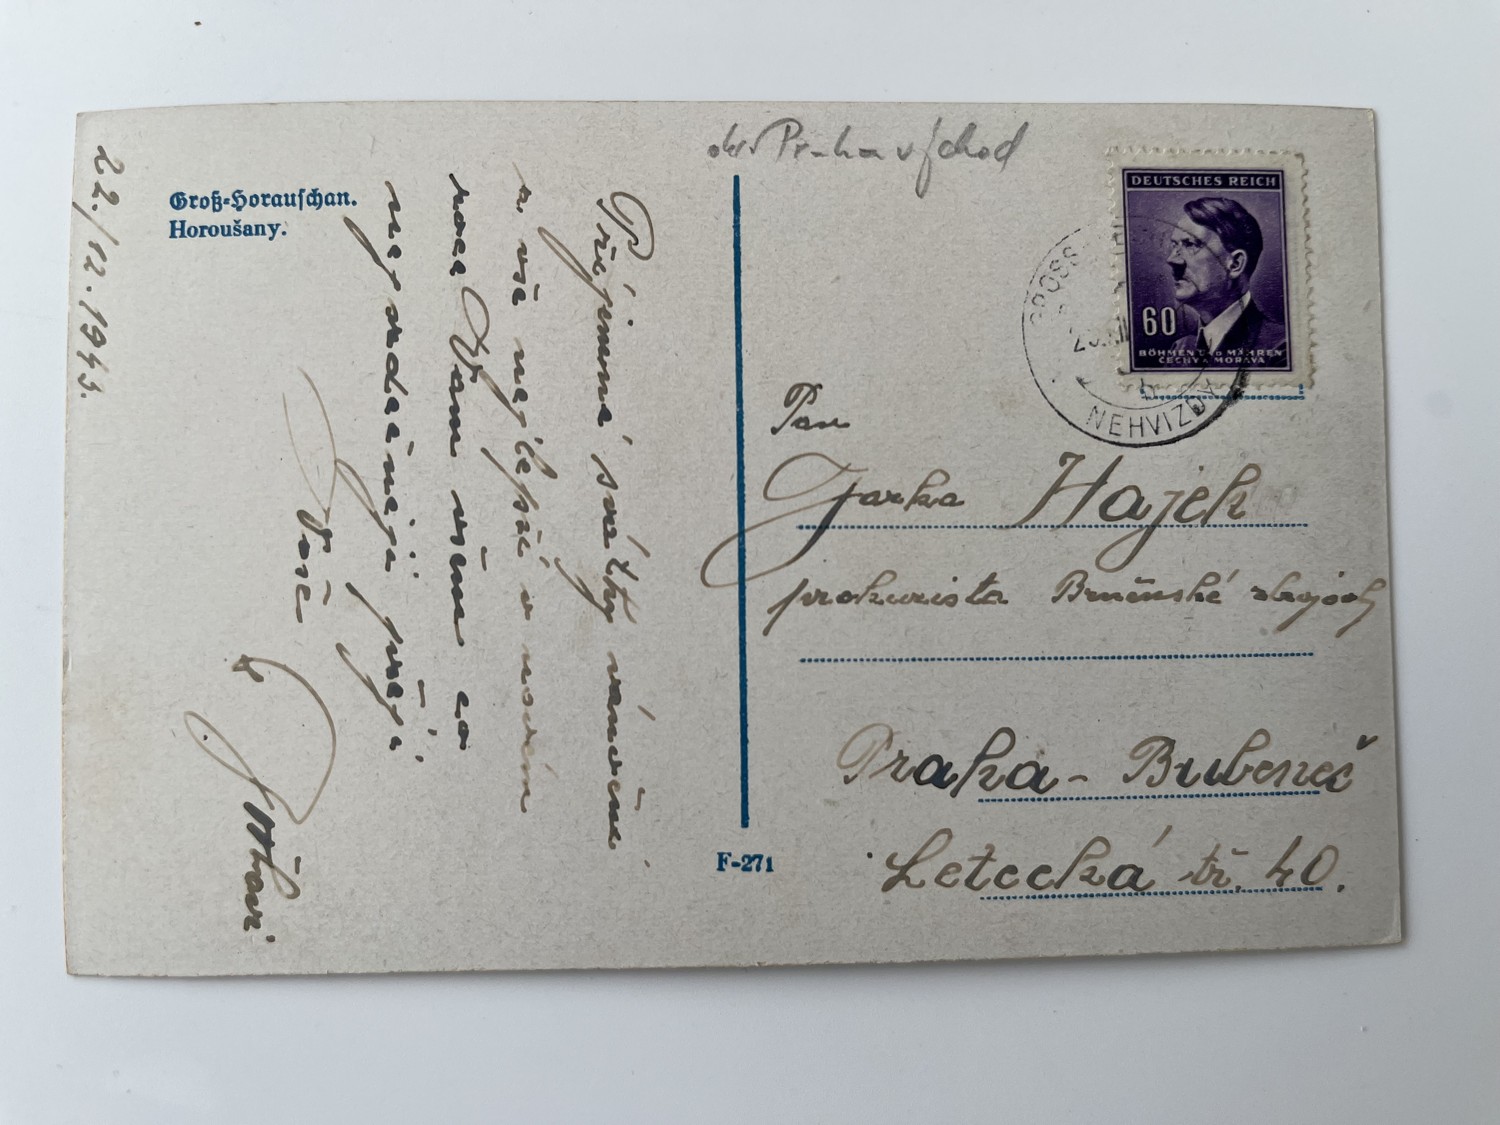 22./12.1943.
Groß-Horauschan.
Horoušany.
Příjemné svátky vánoční
a vše nejlepší v novém
roce Vám všem co
nejsrdečněji přejí
Vaši
okr. Praha východ
DEUTSCHES REICH
60
BÖHMEN UND MÄHREN
ČECHY A MORAVA
GROSS
NEHVIZDY
Pan
Jarka Hajek
prokurista Brněnské zbrojovky
Praha - Bubeneč
Letecká tř. 40.
F-271